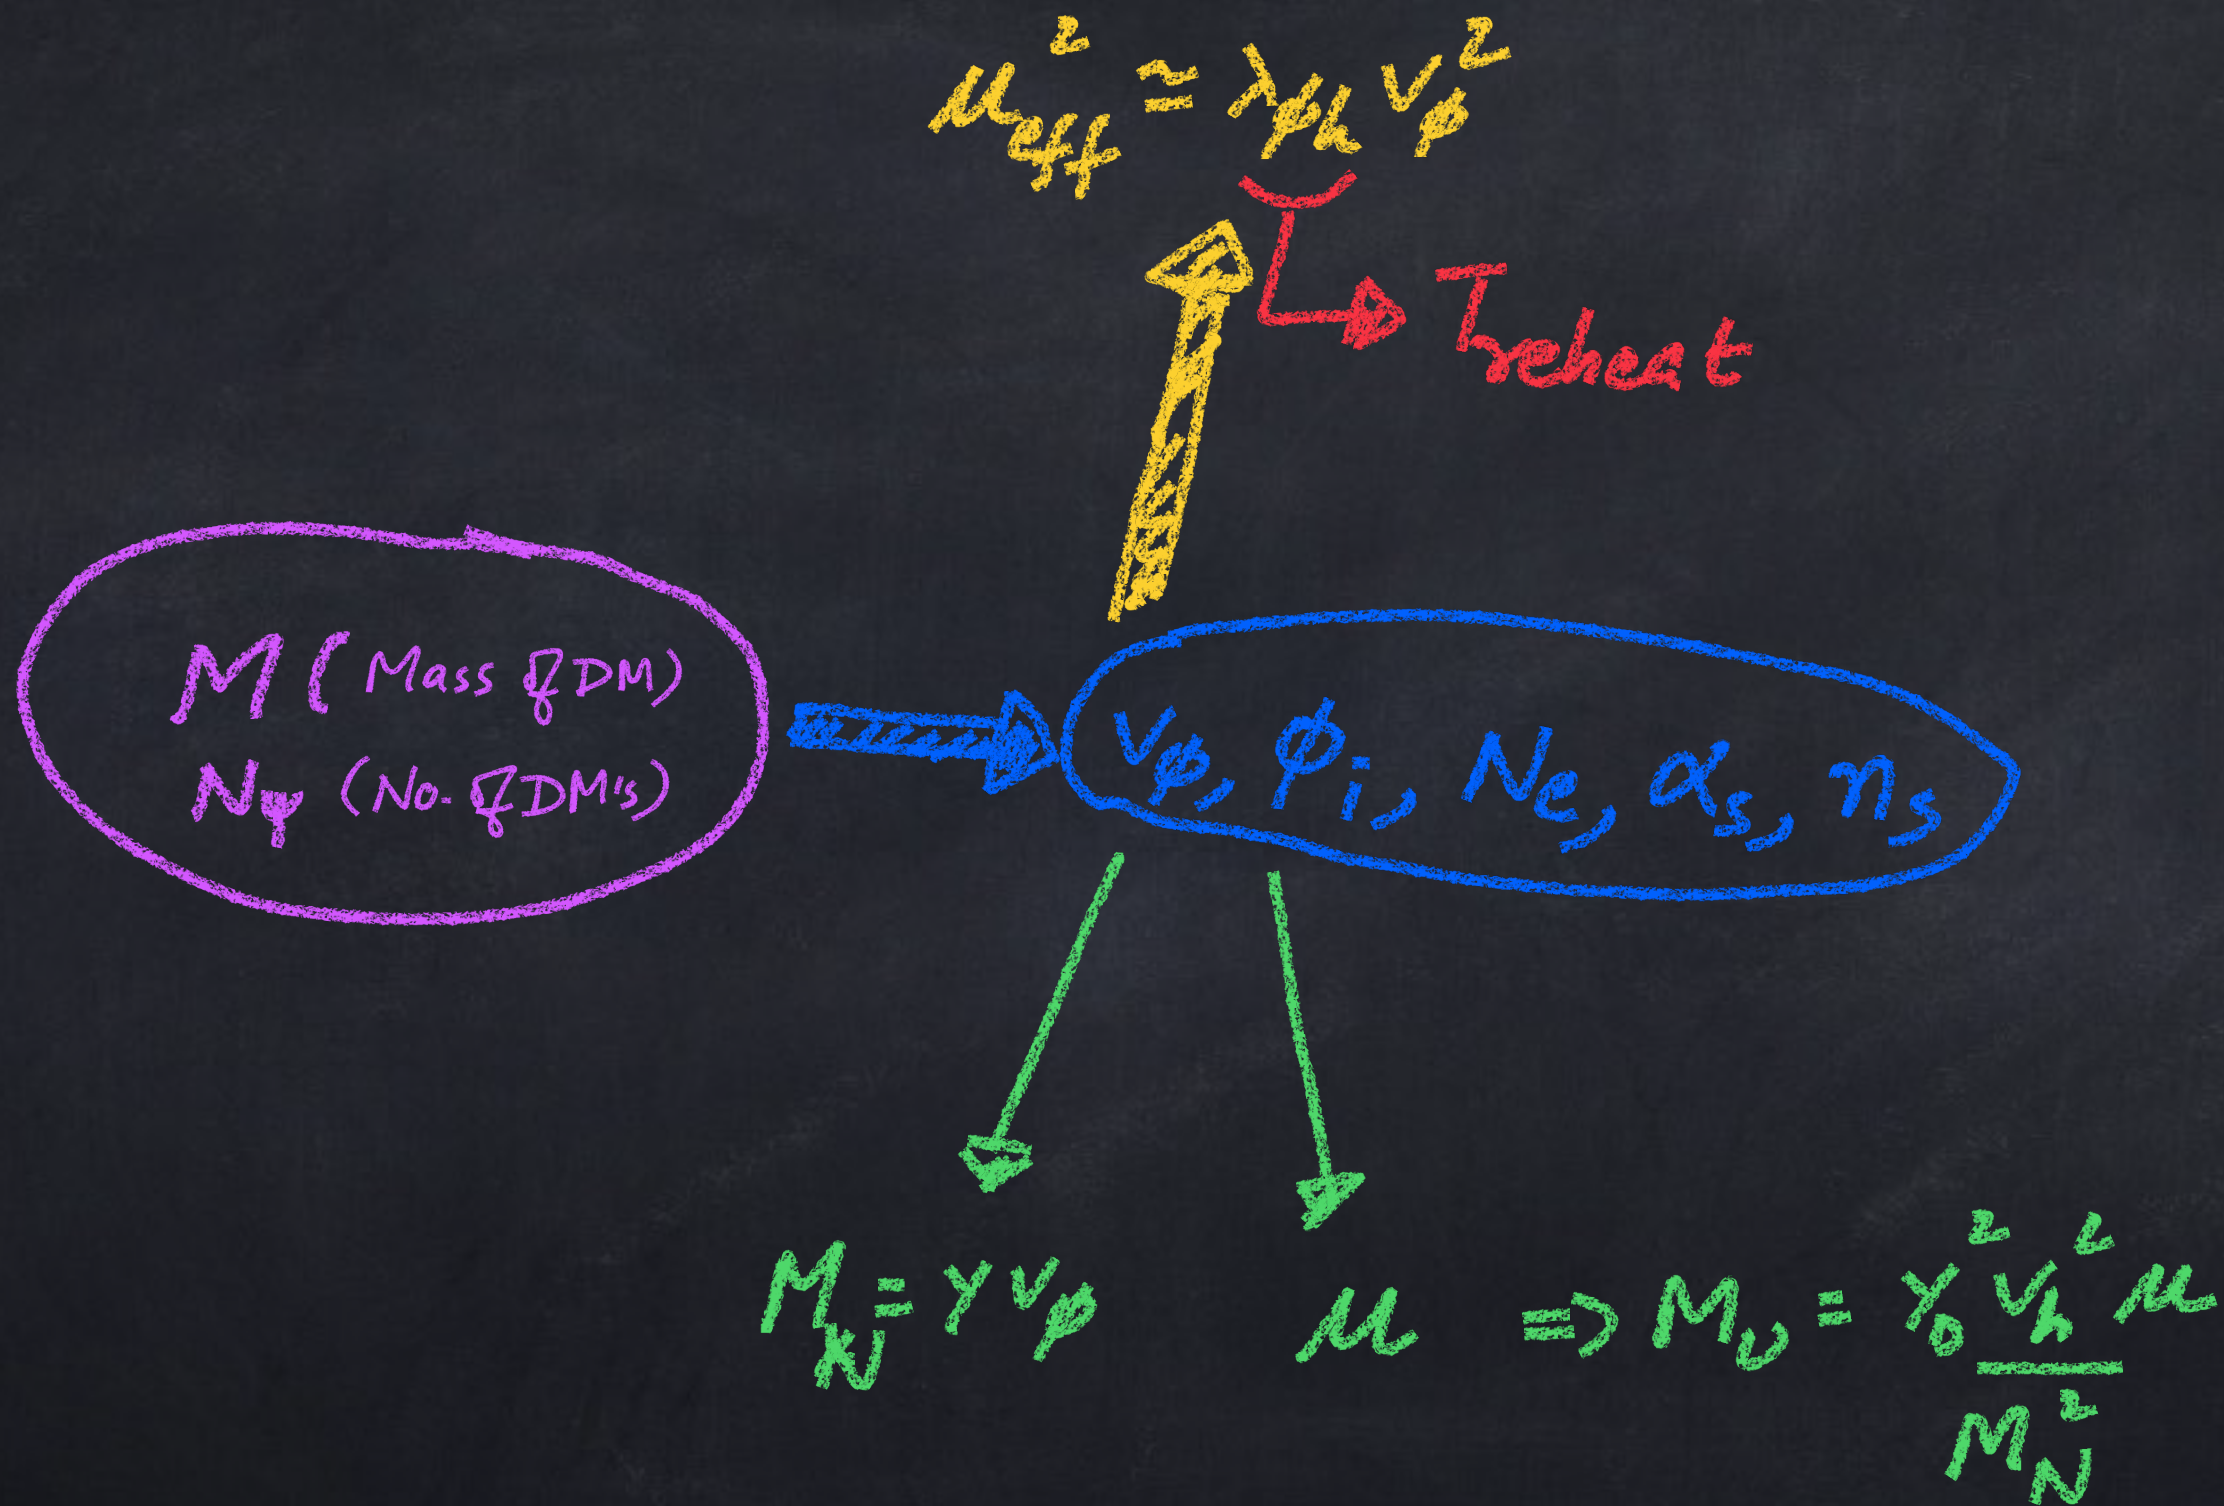 μ²_eff ≃ λ_ϕh v_ϕ²
T_reheat
M (Mass of DM)
N_ψ (No. of DM's)
v_ϕ, ϕ_i, N_e, α_s, n_s
M_N = Y v_ϕ
μ ⇒ M_ν = Y_D² v_h² μ / M_N²